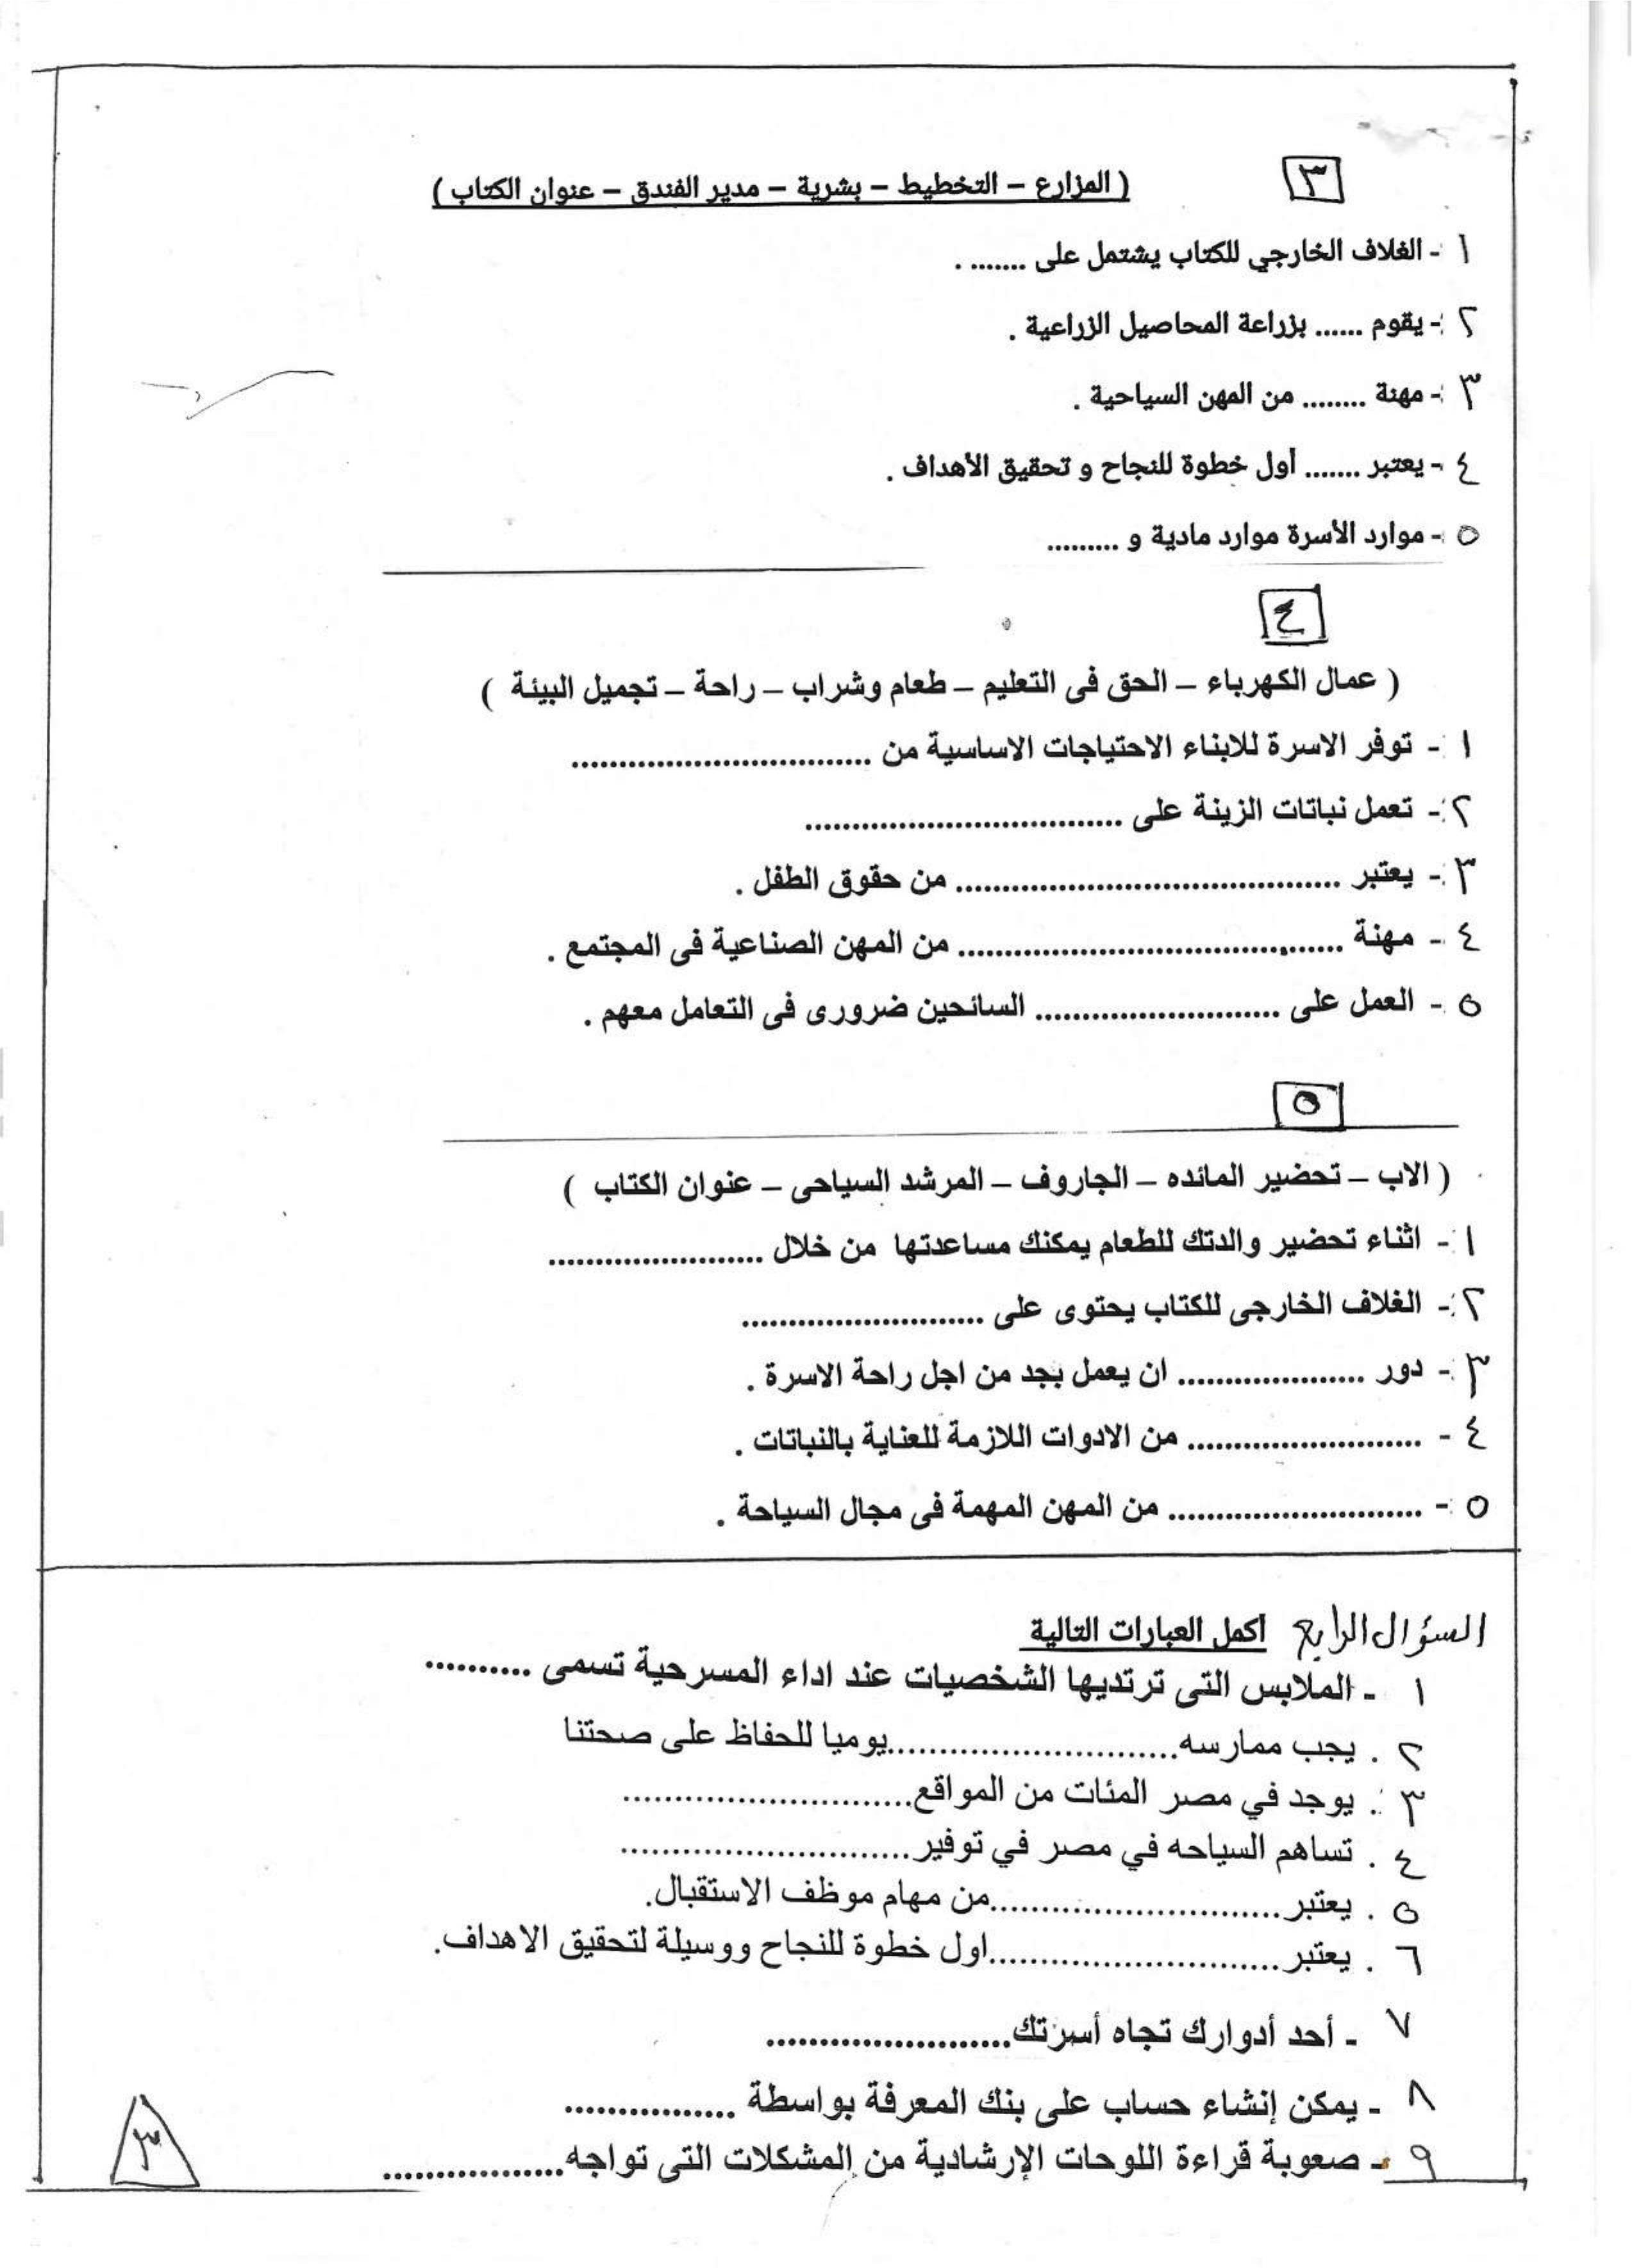 ٣
( المزارع – التخطيط – بشرية – مدير الفندق – عنوان الكتاب )
١ - الغلاف الخارجي للكتاب يشتمل على ....... .
٢ - يقوم ...... بزراعة المحاصيل الزراعية .
٣ - مهنة ........ من المهن السياحية .
٤ - يعتبر ....... أول خطوة للنجاح و تحقيق الأهداف .
٥ - موارد الأسرة موارد مادية و .........
٤
( عمال الكهرباء – الحق فى التعليم – طعام وشراب – راحة – تجميل البيئة )
١ - توفر الاسرة للابناء الاحتياجات الاساسية من ................................
٢ - تعمل نباتات الزينة على ..................................
٣ - يعتبر ......................................... من حقوق الطفل .
٤ - مهنة ......................................... من المهن الصناعية فى المجتمع .
٥ - العمل على .......................... السائحين ضرورى فى التعامل معهم .
٥
( الاب – تحضير المائده – الجاروف – المرشد السياحى – عنوان الكتاب )
١ - اثناء تحضير والدتك للطعام يمكنك مساعدتها من خلال .......................
٢ - الغلاف الخارجى للكتاب يحتوى على ..........................
٣ - دور .................... ان يعمل بجد من اجل راحة الاسرة .
٤ - ......................... من الادوات اللازمة للعناية بالنباتات .
٥ - ........................... من المهن المهمة فى مجال السياحة .
السؤال الرابع أكمل العبارات التالية
١ - الملابس التى ترتديها الشخصيات عند اداء المسرحية تسمى ..........
٢ . يجب ممارسه............................يوميا للحفاظ على صحتنا
٣ . يوجد في مصر المئات من المواقع............................
٤ . تساهم السياحه في مصر في توفير............................
٥ . يعتبر............................من مهام موظف الاستقبال.
٦ . يعتبر............................اول خطوة للنجاح ووسيلة لتحقيق الاهداف.
٧ - أحد أدوارك تجاه أسرتك.......................
٨ - يمكن إنشاء حساب على بنك المعرفة بواسطة ................
٩ - صعوبة قراءة اللوحات الإرشادية من المشكلات التى تواجه.................
٣